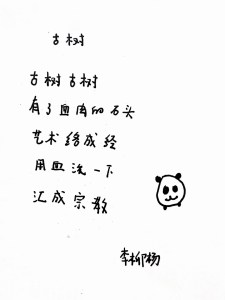 古树
古树古树
有了血肉的石头
艺术络成经
用血洗一下
汇成宗教
李柳杨